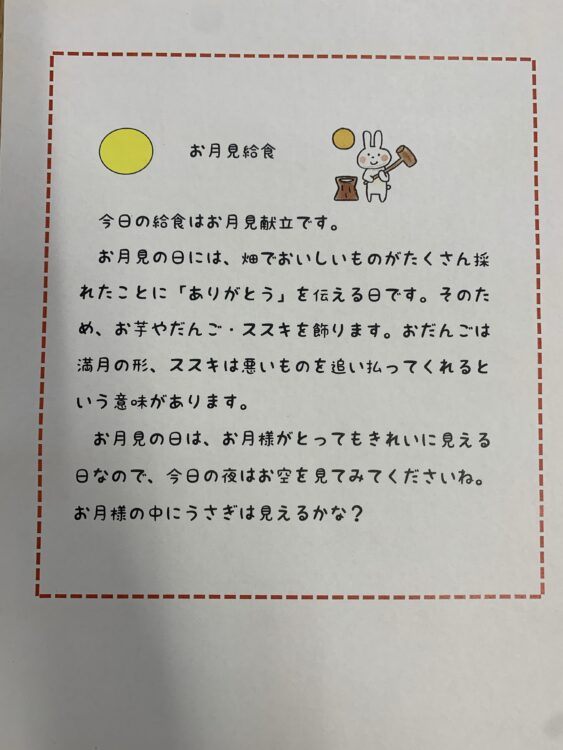 お月見給食
今日の給食はお月見献立です。
お月見の日には、畑でおいしいものがたくさん採
れたことに「ありがとう」を伝える日です。そのた
め、お芋やだんご・ススキを飾ります。おだんごは
満月の形、ススキは悪いものを追い払ってくれると
いう意味があります。
お月見の日は、お月様がとってもきれいに見える
日なので、今日の夜はお空を見てみてくださいね。
お月様の中にうさぎは見えるかな？